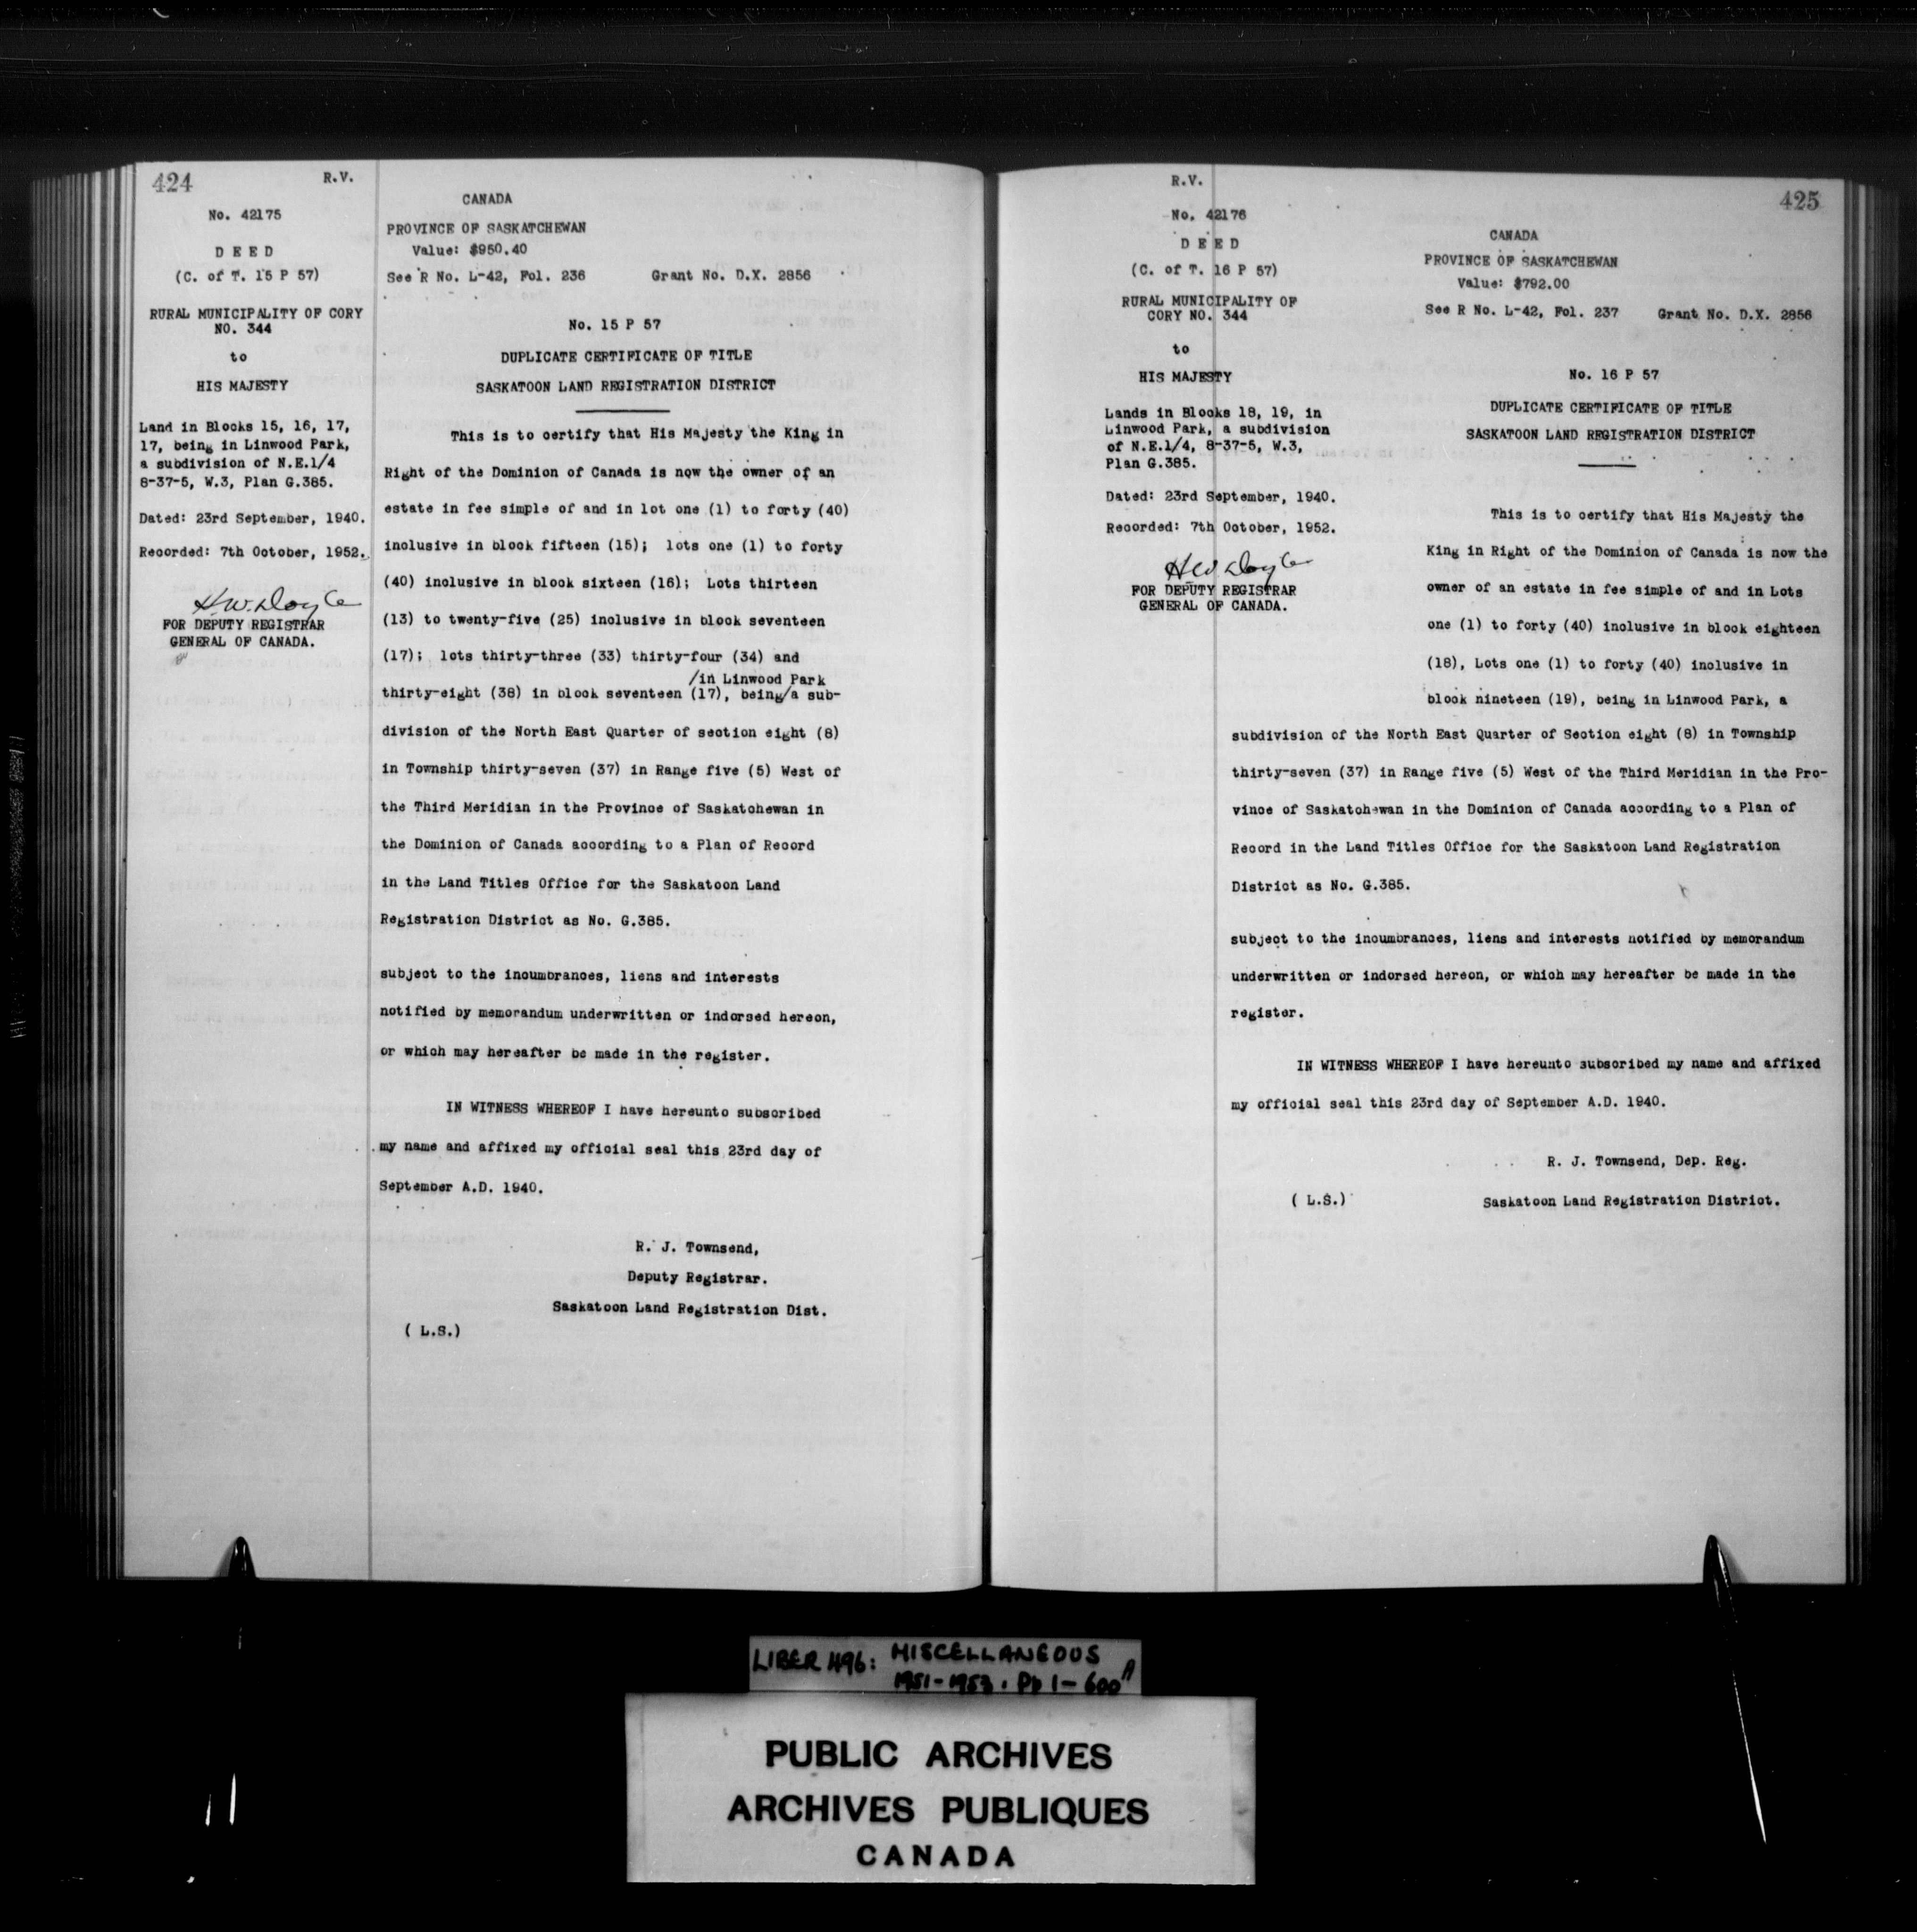 424
R.V.
No. 42175
D E E D
(C. of T. 15 P 57)
RURAL MUNICIPALITY OF CORY
NO. 344
to
HIS MAJESTY
Land in Blocks 15, 16, 17,
17, being in Linwood Park,
a subdivision of N.E.1/4
8-37-5, W.3, Plan G.385.
Dated: 23rd September, 1940.
Recorded: 7th October, 1952.
H.W. Doyle
FOR DEPUTY REGISTRAR
GENERAL OF CANADA.
CANADA
PROVINCE OF SASKATCHEWAN
Value: $950.40
See R No. L-42, Fol. 236 Grant No. D.X. 2856
No. 15 P 57
DUPLICATE CERTIFICATE OF TITLE
SASKATOON LAND REGISTRATION DISTRICT
This is to certify that His Majesty the King in
Right of the Dominion of Canada is now the owner of an
estate in fee simple of and in lot one (1) to forty (40)
inclusive in block fifteen (15); lots one (1) to forty
(40) inclusive in block sixteen (16); Lots thirteen
(13) to twenty-five (25) inclusive in block seventeen
(17); lots thirty-three (33) thirty-four (34) and
/in Linwood Park
thirty-eight (38) in block seventeen (17), being/a sub-
division of the North East Quarter of section eight (8)
in Township thirty-seven (37) in Range five (5) West of
the Third Meridian in the Province of Saskatchewan in
the Dominion of Canada according to a Plan of Record
in the Land Titles Office for the Saskatoon Land
Registration District as No. G.385.
subject to the incumbrances, liens and interests
notified by memorandum underwritten or indorsed hereon,
or which may hereafter be made in the register.
IN WITNESS WHEREOF I have hereunto subscribed
my name and affixed my official seal this 23rd day of
September A.D. 1940.
R. J. Townsend,
Deputy Registrar.
Saskatoon Land Registration Dist.
( L.S.)
R.V.
425
No. 42176
D E E D
(C. of T. 16 P 57)
RURAL MUNICIPALITY OF
CORY NO. 344
to
HIS MAJESTY
Lands in Blocks 18, 19, in
Linwood Park, a subdivision
of N.E.1/4, 8-37-5, W.3,
Plan G.385.
Dated: 23rd September, 1940.
Recorded: 7th October, 1952.
H.W. Doyle
FOR DEPUTY REGISTRAR
GENERAL OF CANADA.
CANADA
PROVINCE OF SASKATCHEWAN
Value: $792.00
See R No. L-42, Fol. 237 Grant No. D.X. 2856
No. 16 P 57
DUPLICATE CERTIFICATE OF TITLE
SASKATOON LAND REGISTRATION DISTRICT
This is to certify that His Majesty the
King in Right of the Dominion of Canada is now the
owner of an estate in fee simple of and in Lots
one (1) to forty (40) inclusive in block eighteen
(18), Lots one (1) to forty (40) inclusive in
block nineteen (19), being in Linwood Park, a
subdivision of the North East Quarter of Section eight (8) in Township
thirty-seven (37) in Range five (5) West of the Third Meridian in the Pro-
vince of Saskatchewan in the Dominion of Canada according to a Plan of
Record in the Land Titles Office for the Saskatoon Land Registration
District as No. G.385.
subject to the incumbrances, liens and interests notified by memorandum
underwritten or indorsed hereon, or which may hereafter be made in the
register.
IN WITNESS WHEREOF I have hereunto subscribed my name and affixed
my official seal this 23rd day of September A.D. 1940.
R. J. Townsend, Dep. Reg.
( L.S.) Saskatoon Land Registration District.
LIBER 496: MISCELLANEOUS
1951-1953. Pp 1-600A
PUBLIC ARCHIVES
ARCHIVES PUBLIQUES
CANADA